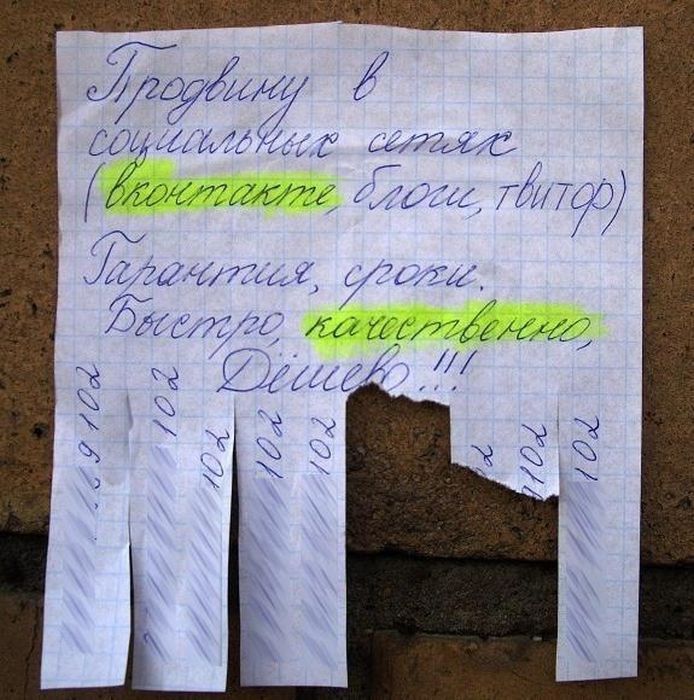 Продвину в
социальных сетях
(вконтакте, блоги, твитор)
Гарантия, сроки.
Быстро, качественно,
Дёшево!!!
9 102
102
102
102
102
2
9102
102